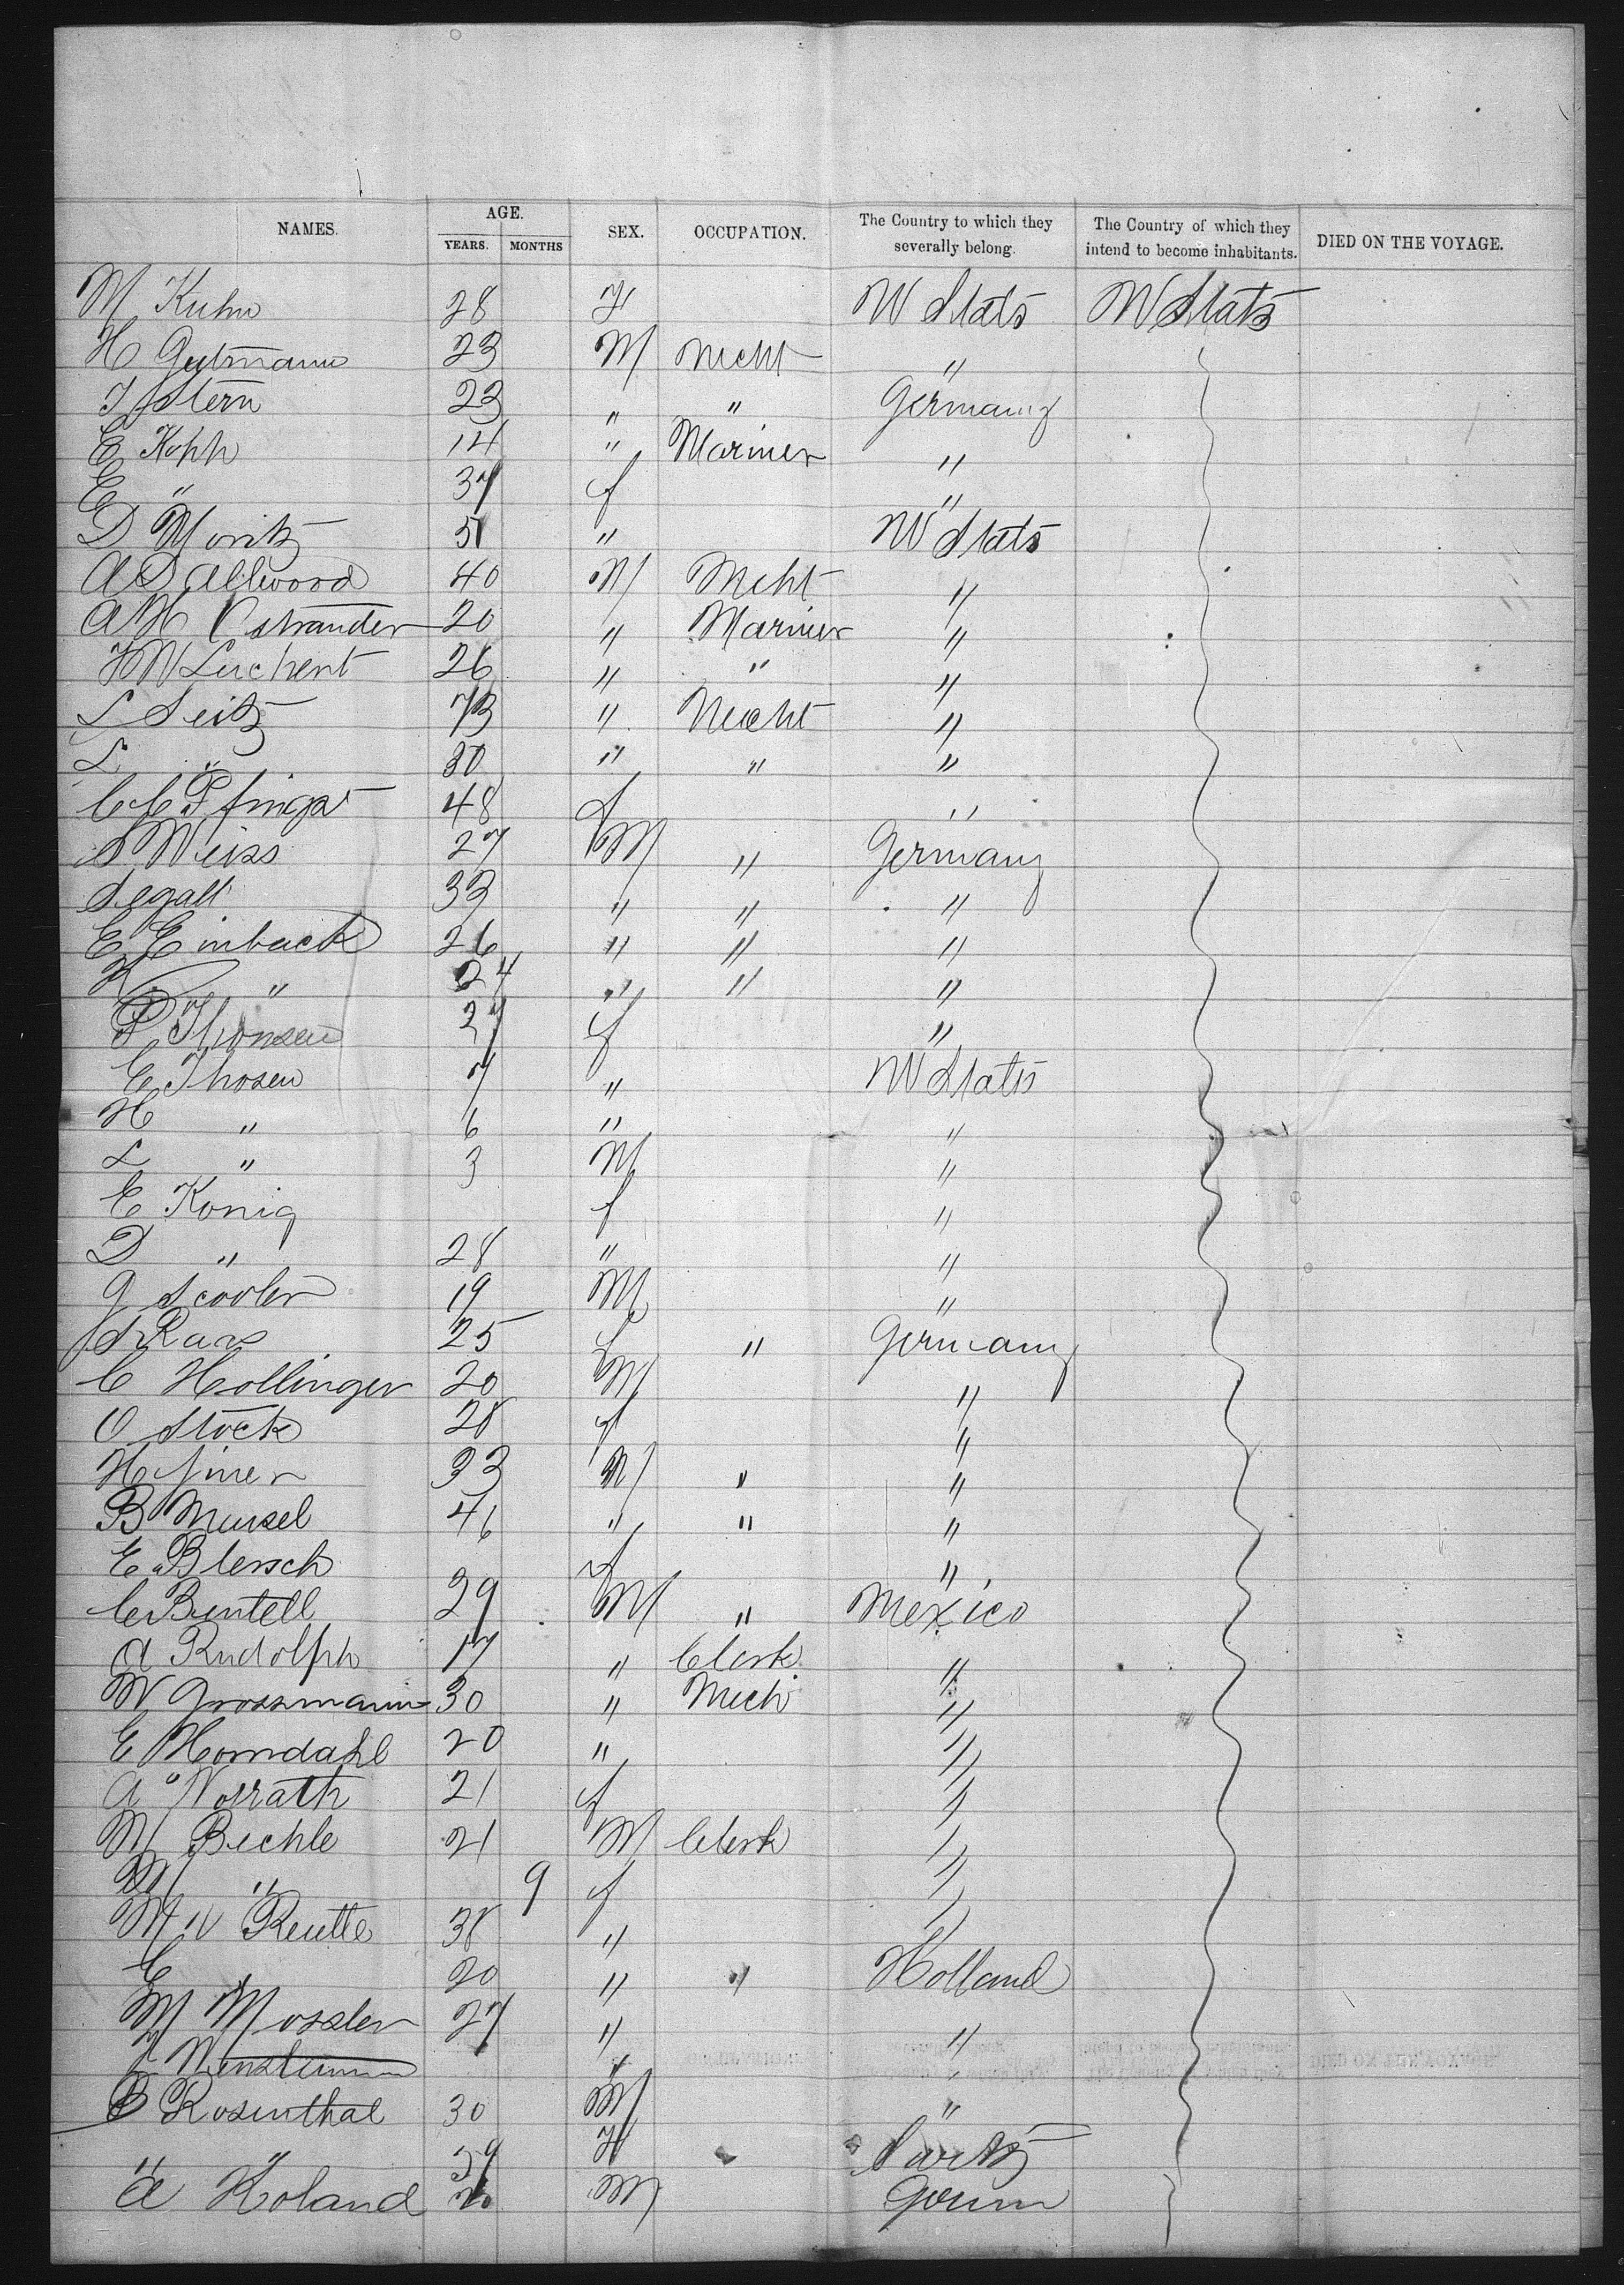 NAMES. AGE. YEARS. MONTHS SEX. OCCUPATION. The Country to which they severally belong. The Country of which they intend to become inhabitants. DIED ON THE VOYAGE.
M Kuhn 28 F W Stats W Stats
H Gutmann 23 M Mcht "
J Stern 23 " " Germany
E Koph 14 " Mariner "
E " 37 f "
D Moritz 51 " W Stats
A S Allwood 40 M Mcht "
A H Ostrander 20 " Mariner "
26 " " "
L Seitz 73 " Mcht "
L " 30 " " "
48 f "
S Weiss 27 M " Germany
Segall 33 " " "
E Einback 26 " " "
" 24 " " "
P Thonsen 27 f "
E Thosen 7 " W Stats
H " 6 " "
L " 3 M "
E Konig f "
D " 28 " "
G Scooler 19 M "
25 f " Germany
C Hollinger 20 M "
O Stock 28 f "
H finer 33 M " "
B Meusel 46 " " "
E Blersch f "
C Bentell 29 M " Mexico
A Rudolph 17 " Clerk "
W Grossmann 30 " Mech "
E Horndahl 20 " "
A Vollrath 21 f "
M Bechle 21 M Clerk "
M " 9 f "
M v Reutte 38 " "
E 20 " " Holland
M Mossler 27 " "
"
B Rosenthal 30 M "
" " F
A Holand M Germ